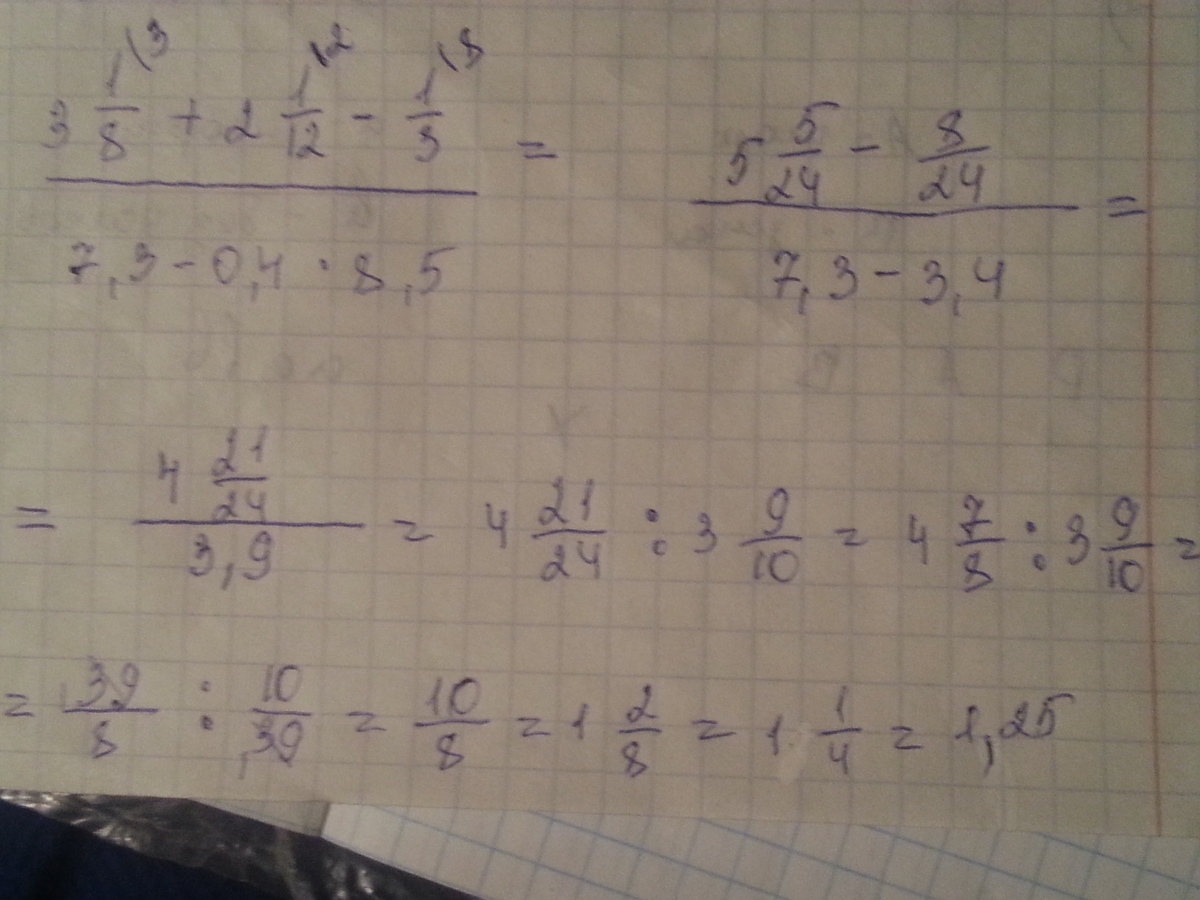 3 1/8 (3 + 2 1/12 (2 - 1/3 (8 / 7,3 - 0,4 · 8,5 = 5 5/24 - 8/24 / 7,3 - 3,4 =
= 4 21/24 / 3,9 = 4 21/24 : 3 9/10 = 4 7/8 : 3 9/10 =
= 39/8 : 10/39 = 10/8 = 1 2/8 = 1 1/4 = 1,25